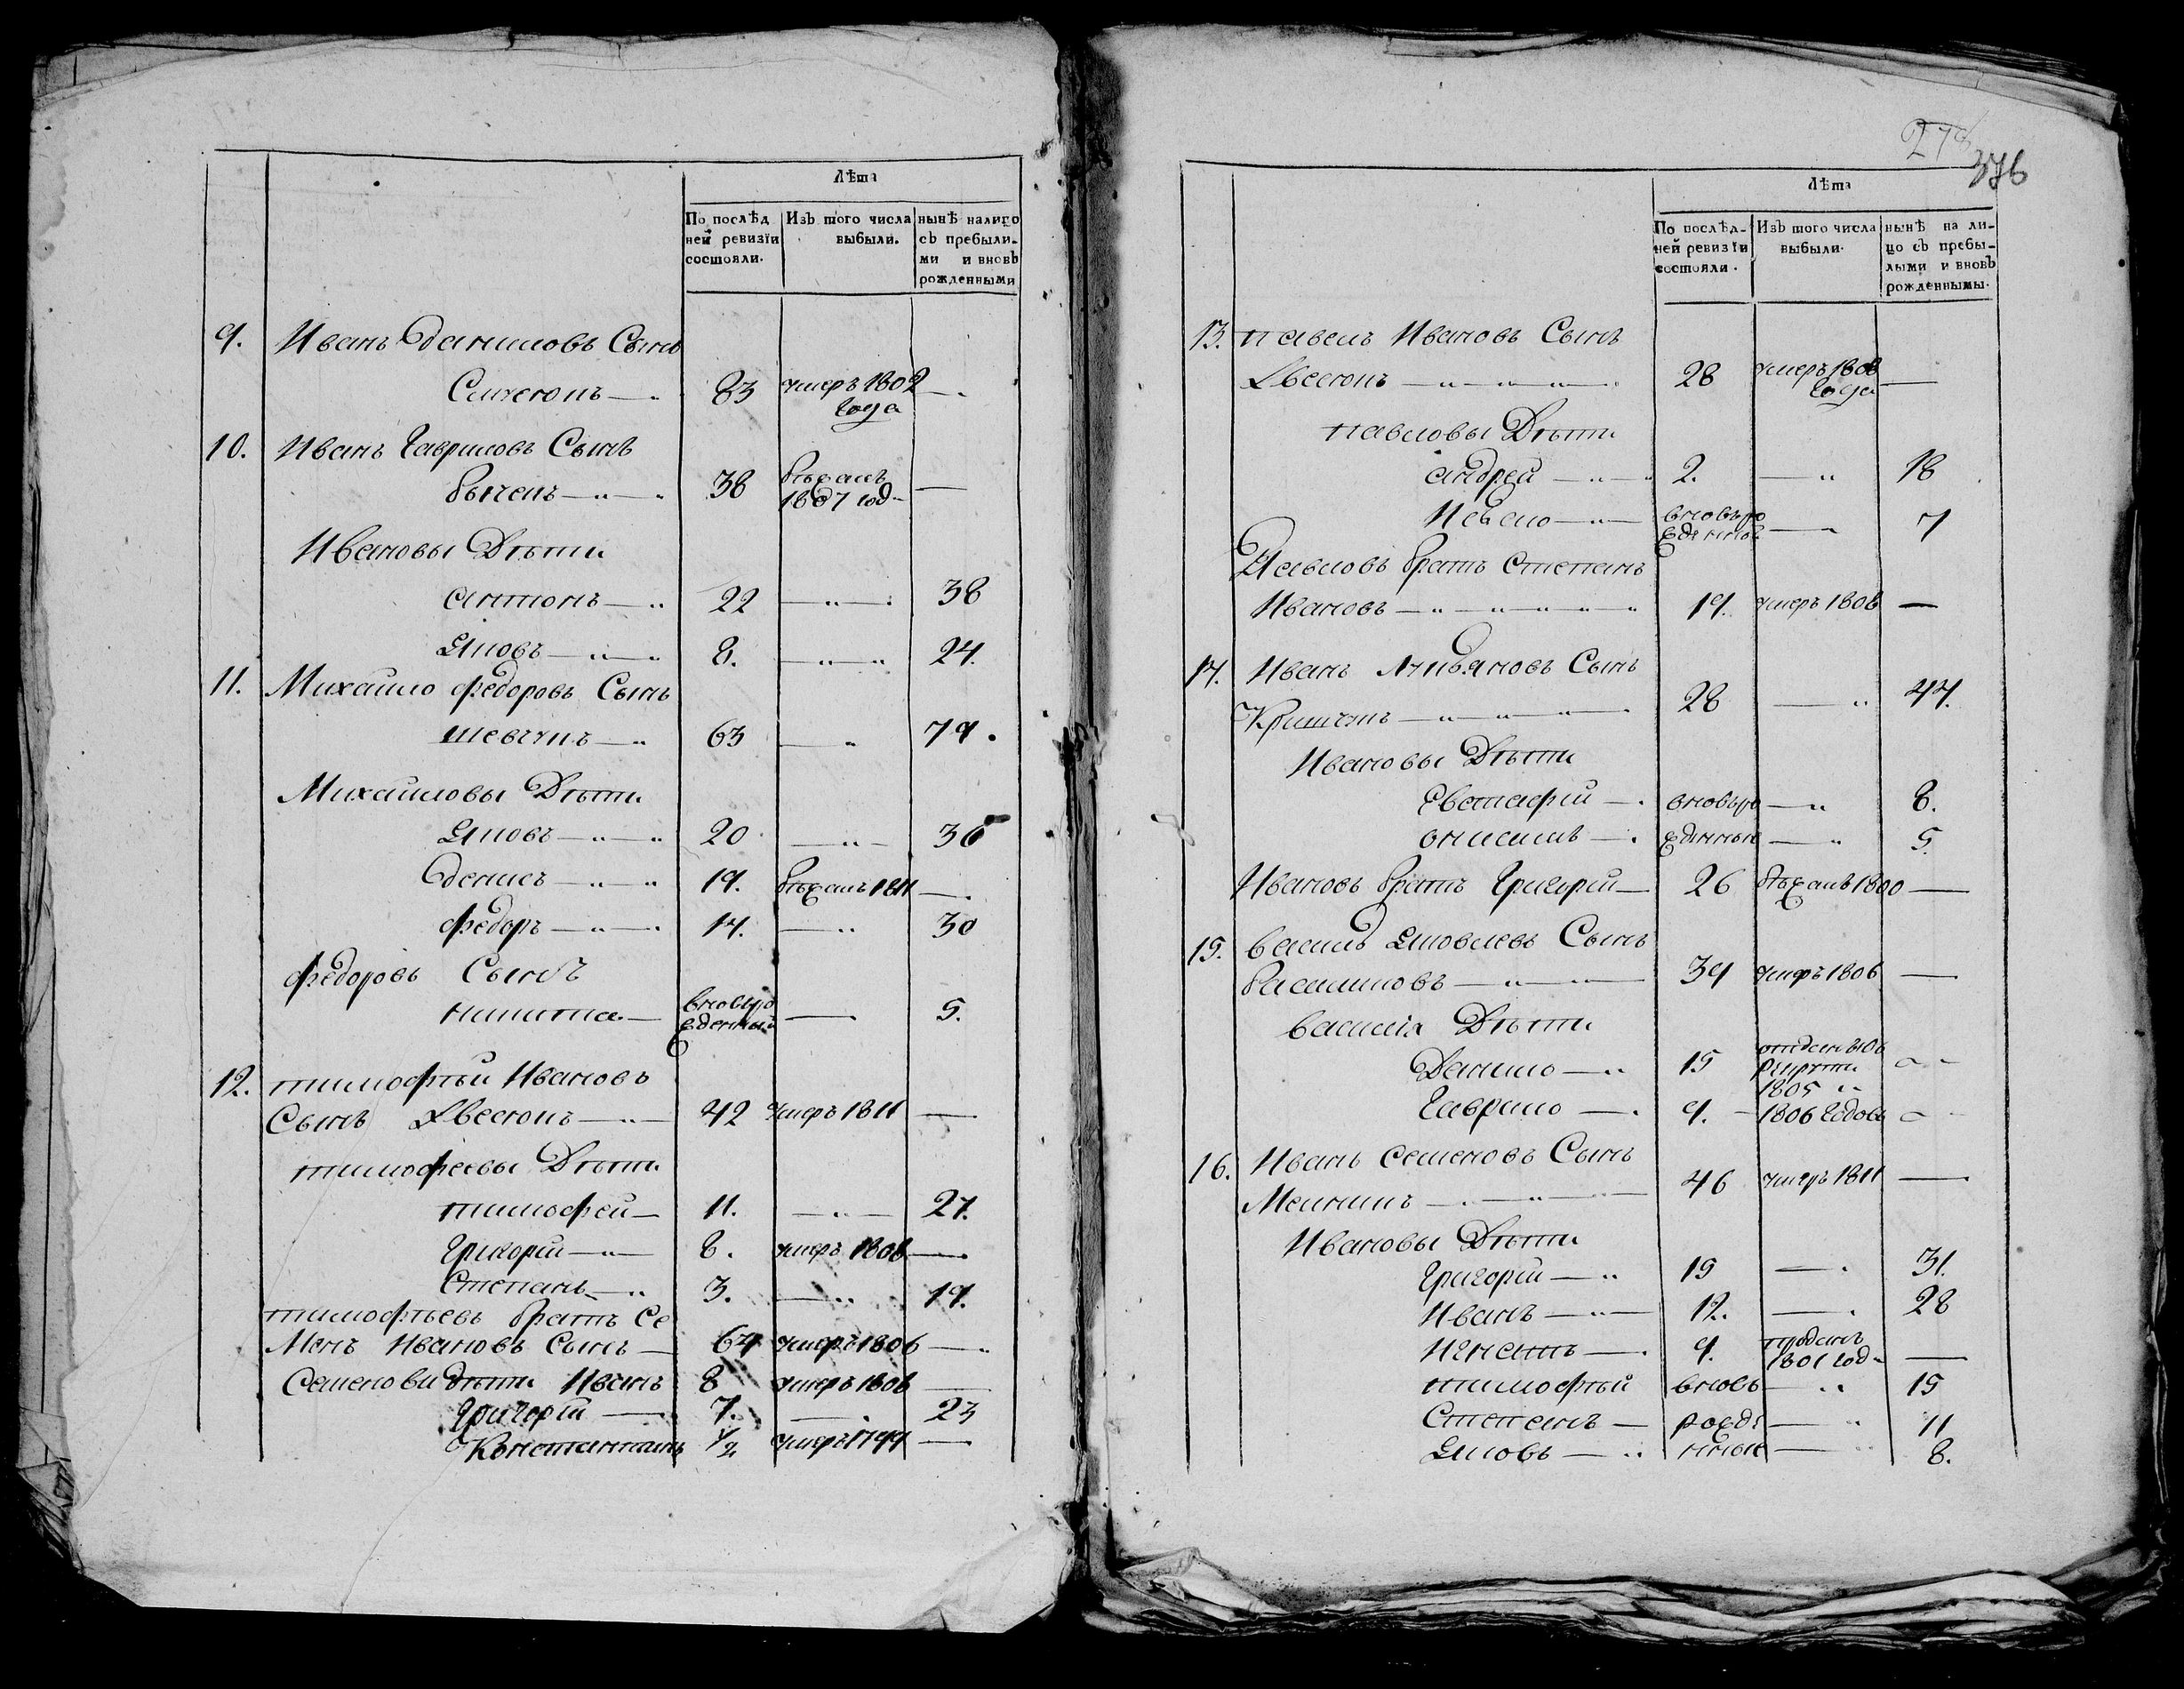 Лѣта
По послѣд ней ревизїи состояли.
Изъ того числа выбыли.
нынѣ налицо съ пребылими и вновь рожденными
9. Иванъ Даниловъ Сынъ
83 умеръ 1802 года —
10. Иванъ Гавриловъ Сынъ
Быченъ — 38 бѣжалъ 1807 год —
Ивановы Дѣти
антонъ — 22 — 38
Яковъ — 8. — 24.
11. Михайло федоровъ Сынъ
шевчукъ — 63 — 79.
Михайловы Дѣти
Яковъ — 20 — 36
денисъ — 19. бѣжалъ 1811 —
федоръ — 14. — 30
федоровъ Сынъ
никита — вновь рожденный — 5.
12. тимофѣй Ивановъ
Сынъ 42 умеръ 1811 —
тимофеевы Дѣти
тимофей — 11. — 27.
Григорій — 8. умеръ 1808 —
Степанъ — 3. — 19.
тимофѣевъ братъ Се
менъ Ивановъ Сынъ — 64 умеръ 1806 —
Семенови дѣти Иванъ 8 умеръ 1808 —
Григорій — 7. — 23
Константинъ 1/2 умеръ 1799 —
278
376
Лѣта
По послѣд-ней ревизїи состояли.
Изъ того числа выбыли.
нынѣ на ли-цо съ пребы-лыми и вновь рожденнымы.
13. павелъ Ивановъ Сынъ
28 умеръ 1808 года —
павловы Дѣти
андрей — 2. — 18
вновь рожденнои — 7
Павловъ братъ Степанъ
Ивановъ — 19. умеръ 1808 —
14. Иванъ Сынъ
28 — 44.
Ивановы Дѣти
Евстафій — вновь ро — 8.
онисимъ — жднныи — 5.
Ивановъ братъ Григорій — 26 бѣжалъ 1800 —
15. василь Яковлевъ Сынъ
39 умеръ 1806 —
василія Дѣти
Данило — 15 отданы въ рекруты 1805
Гаврило — 9. — 1806 Годовъ
16. Иванъ семеновъ Сынъ
46 умеръ 1811 —
Ивановы Дѣти
Григорій — 15 — 31.
Иванъ — 12. — 28
игнатъ — 9. проданъ 1801 год —
тимофѣй вновь — 15
Степанъ — рожде — 11
Яковъ — нные — 8.